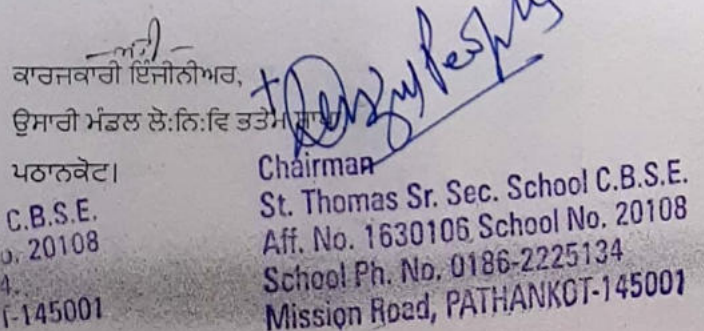 ਕਾਰਜਕਾਰੀ ਇੰਜੀਨੀਅਰ,
ਉਸਾਰੀ ਮੰਡਲ ਲੋ:ਨਿ:ਵਿ ਭਤੇਮ
ਪਠਾਨਕੋਟ।
C.B.S.E.
20108
4.
T-145001
Chairman
St. Thomas Sr. Sec. School C.B.S.E.
Aff. No. 1630106 School No. 20108
School Ph. No. 0186-2225134
Mission Road, PATHANKOT-145001